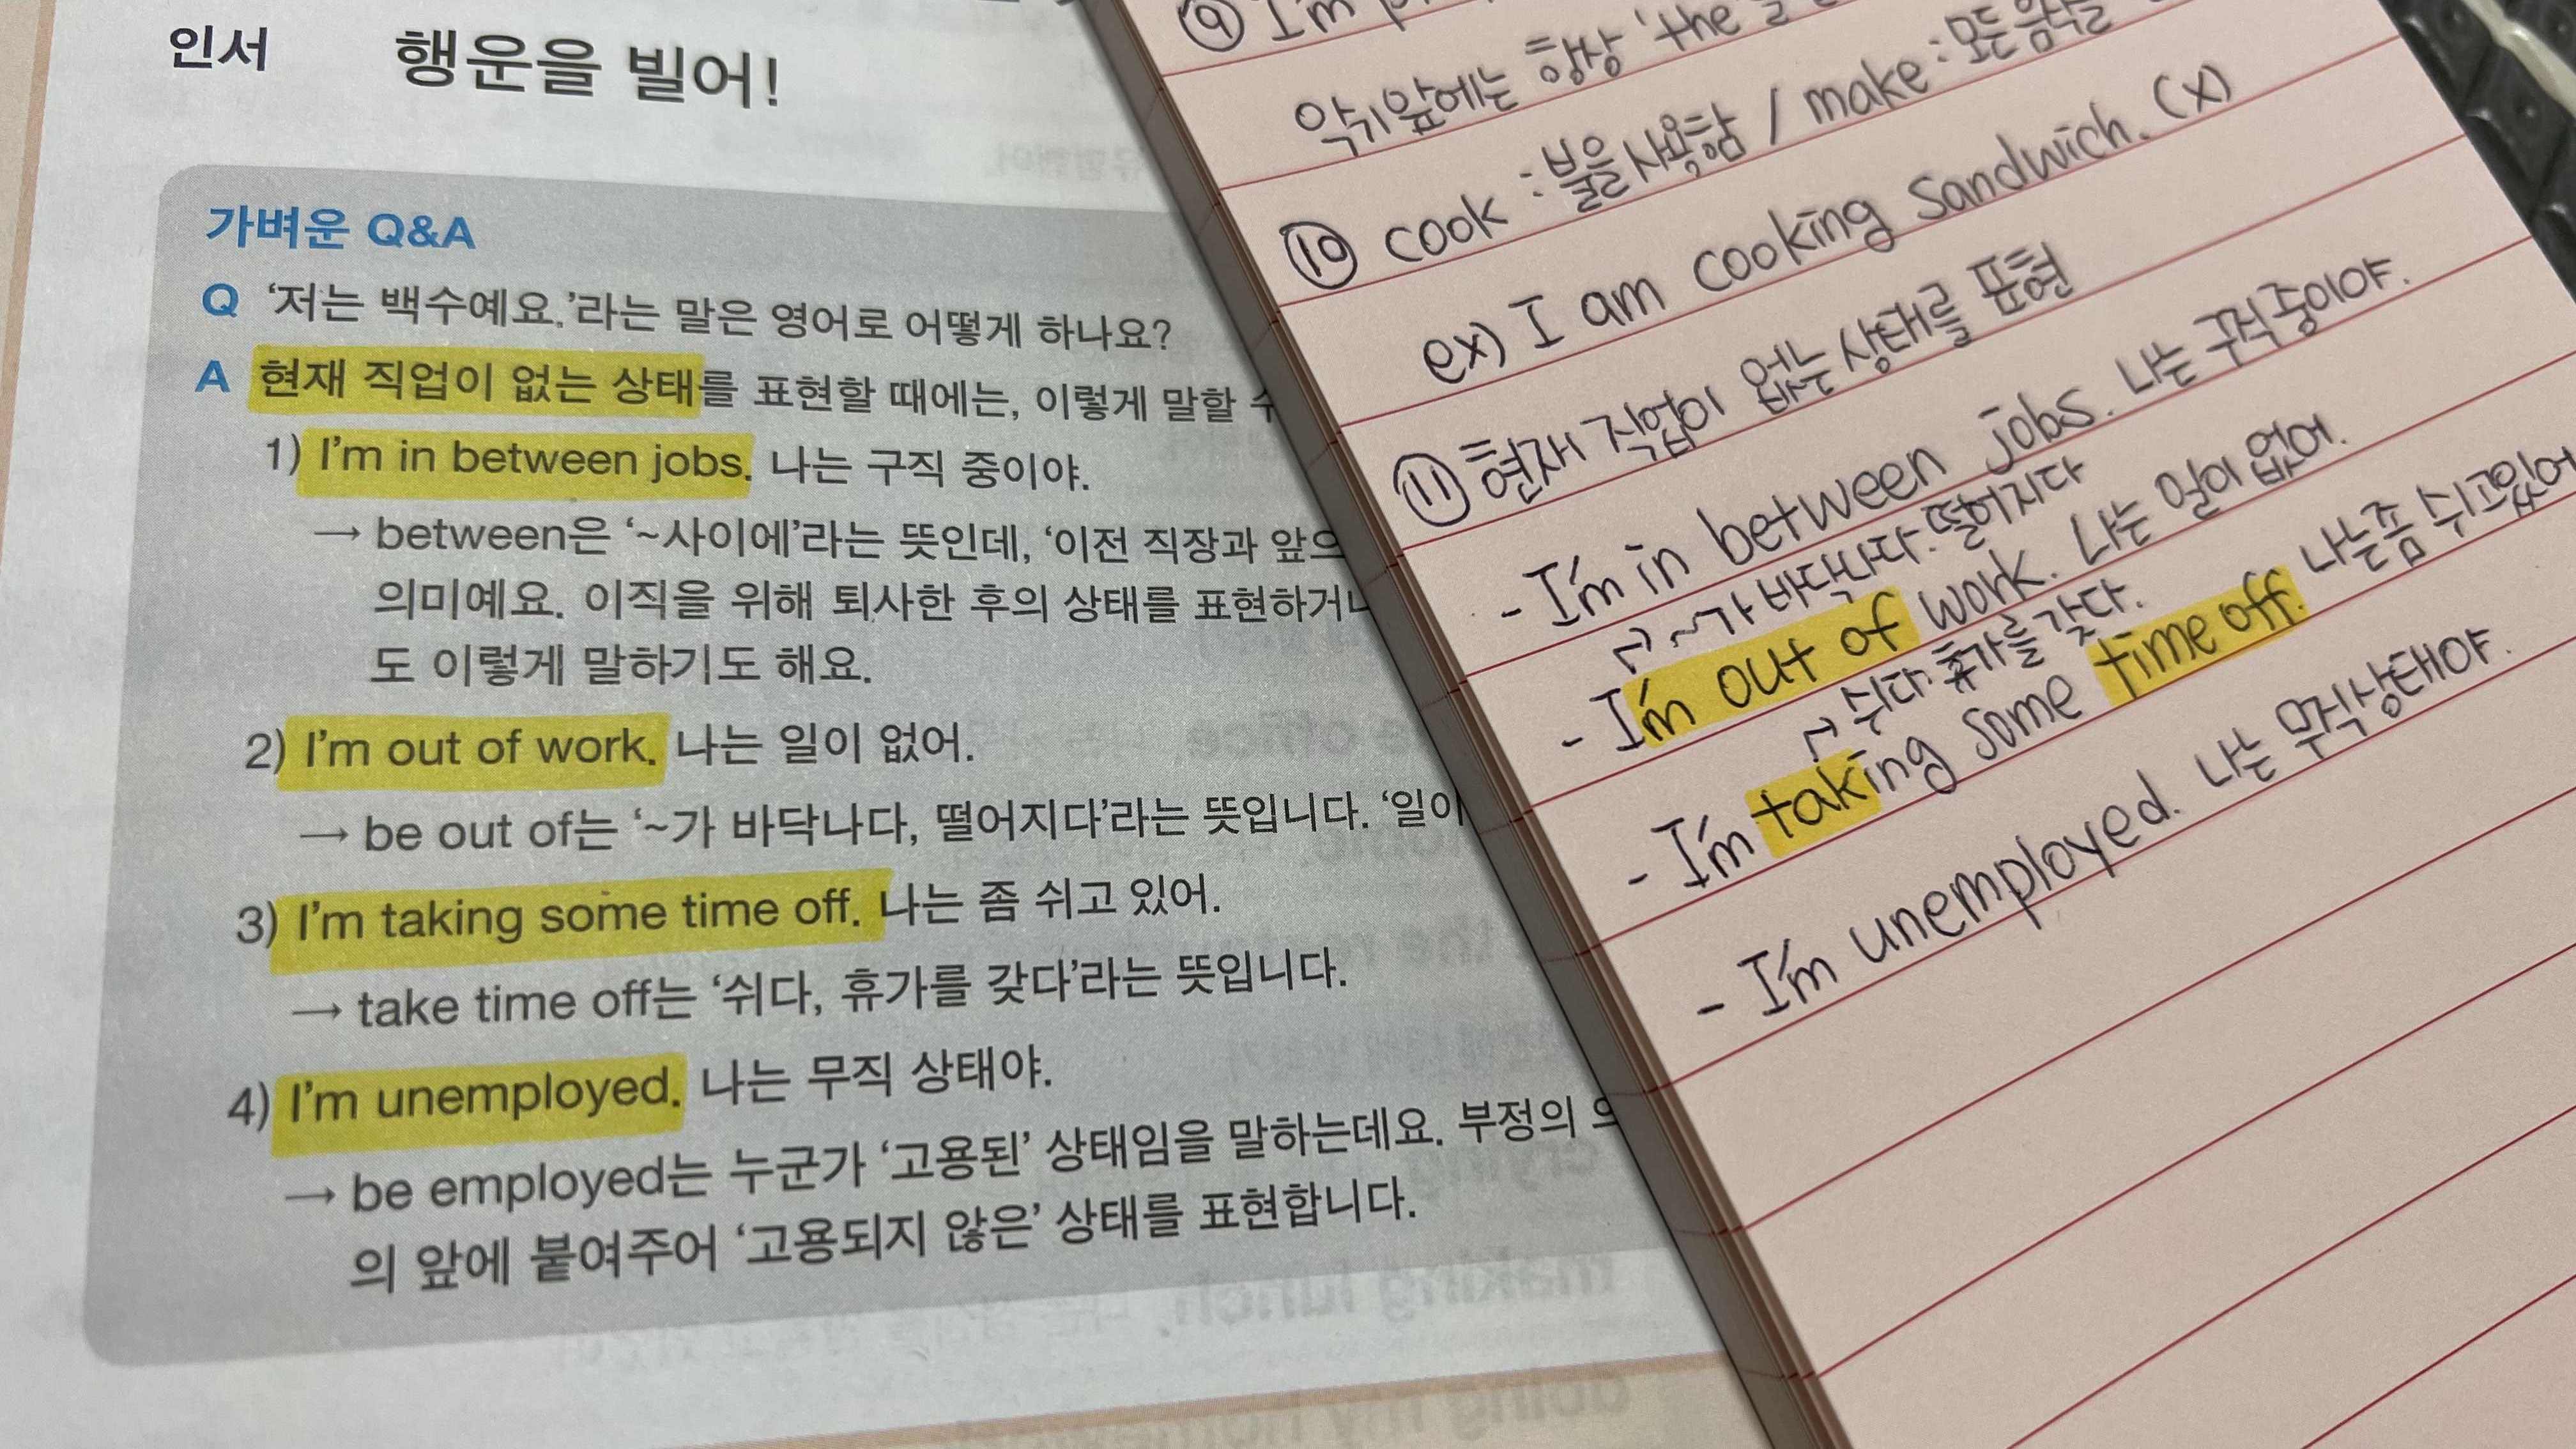 인서 행운을 빌어!
가벼운 Q&A
Q ‘저는 백수예요.’라는 말은 영어로 어떻게 하나요?
A 현재 직업이 없는 상태를 표현할 때에는, 이렇게 말할
1) I’m in between jobs. 나는 구직 중이야.
→ between은 ‘~사이에’라는 뜻인데, ‘이전 직장과
의미예요. 이직을 위해 퇴사한 후의 상태를 표현하거나
도 이렇게 말하기도 해요.
2) I’m out of work. 나는 일이 없어.
→ be out of는 ‘~가 바닥나다, 떨어지다’라는 뜻입니다. ‘일이
3) I’m taking some time off. 나는 좀 쉬고 있어.
→ take time off는 ‘쉬다, 휴가를 갖다’라는 뜻입니다.
4) I’m unemployed. 나는 무직 상태야.
→ be employed는 누군가 ‘고용된’ 상태임을 말하는데요. 부정의
의 앞에 붙여주어 ‘고용되지 않은’ 상태를 표현합니다.
⑨ I'm
악기앞에는 항상 'the
⑩ cook : 불을 사용함 / make : 모든 음식을
ex) I am cooking sandwich. (x)
⑪ 현재 직업이 없는 상태를 표현
- I'm in between jobs. 나는 구직 중이야.
↱ ~가 바닥나다. 떨어지다
- I'm out of work. 나는 일이 없어.
↱ 쉬다. 휴가를 갖다.
- I'm taking some time off. 나는 좀 쉬고있어
- I'm unemployed. 나는 무직상태야.